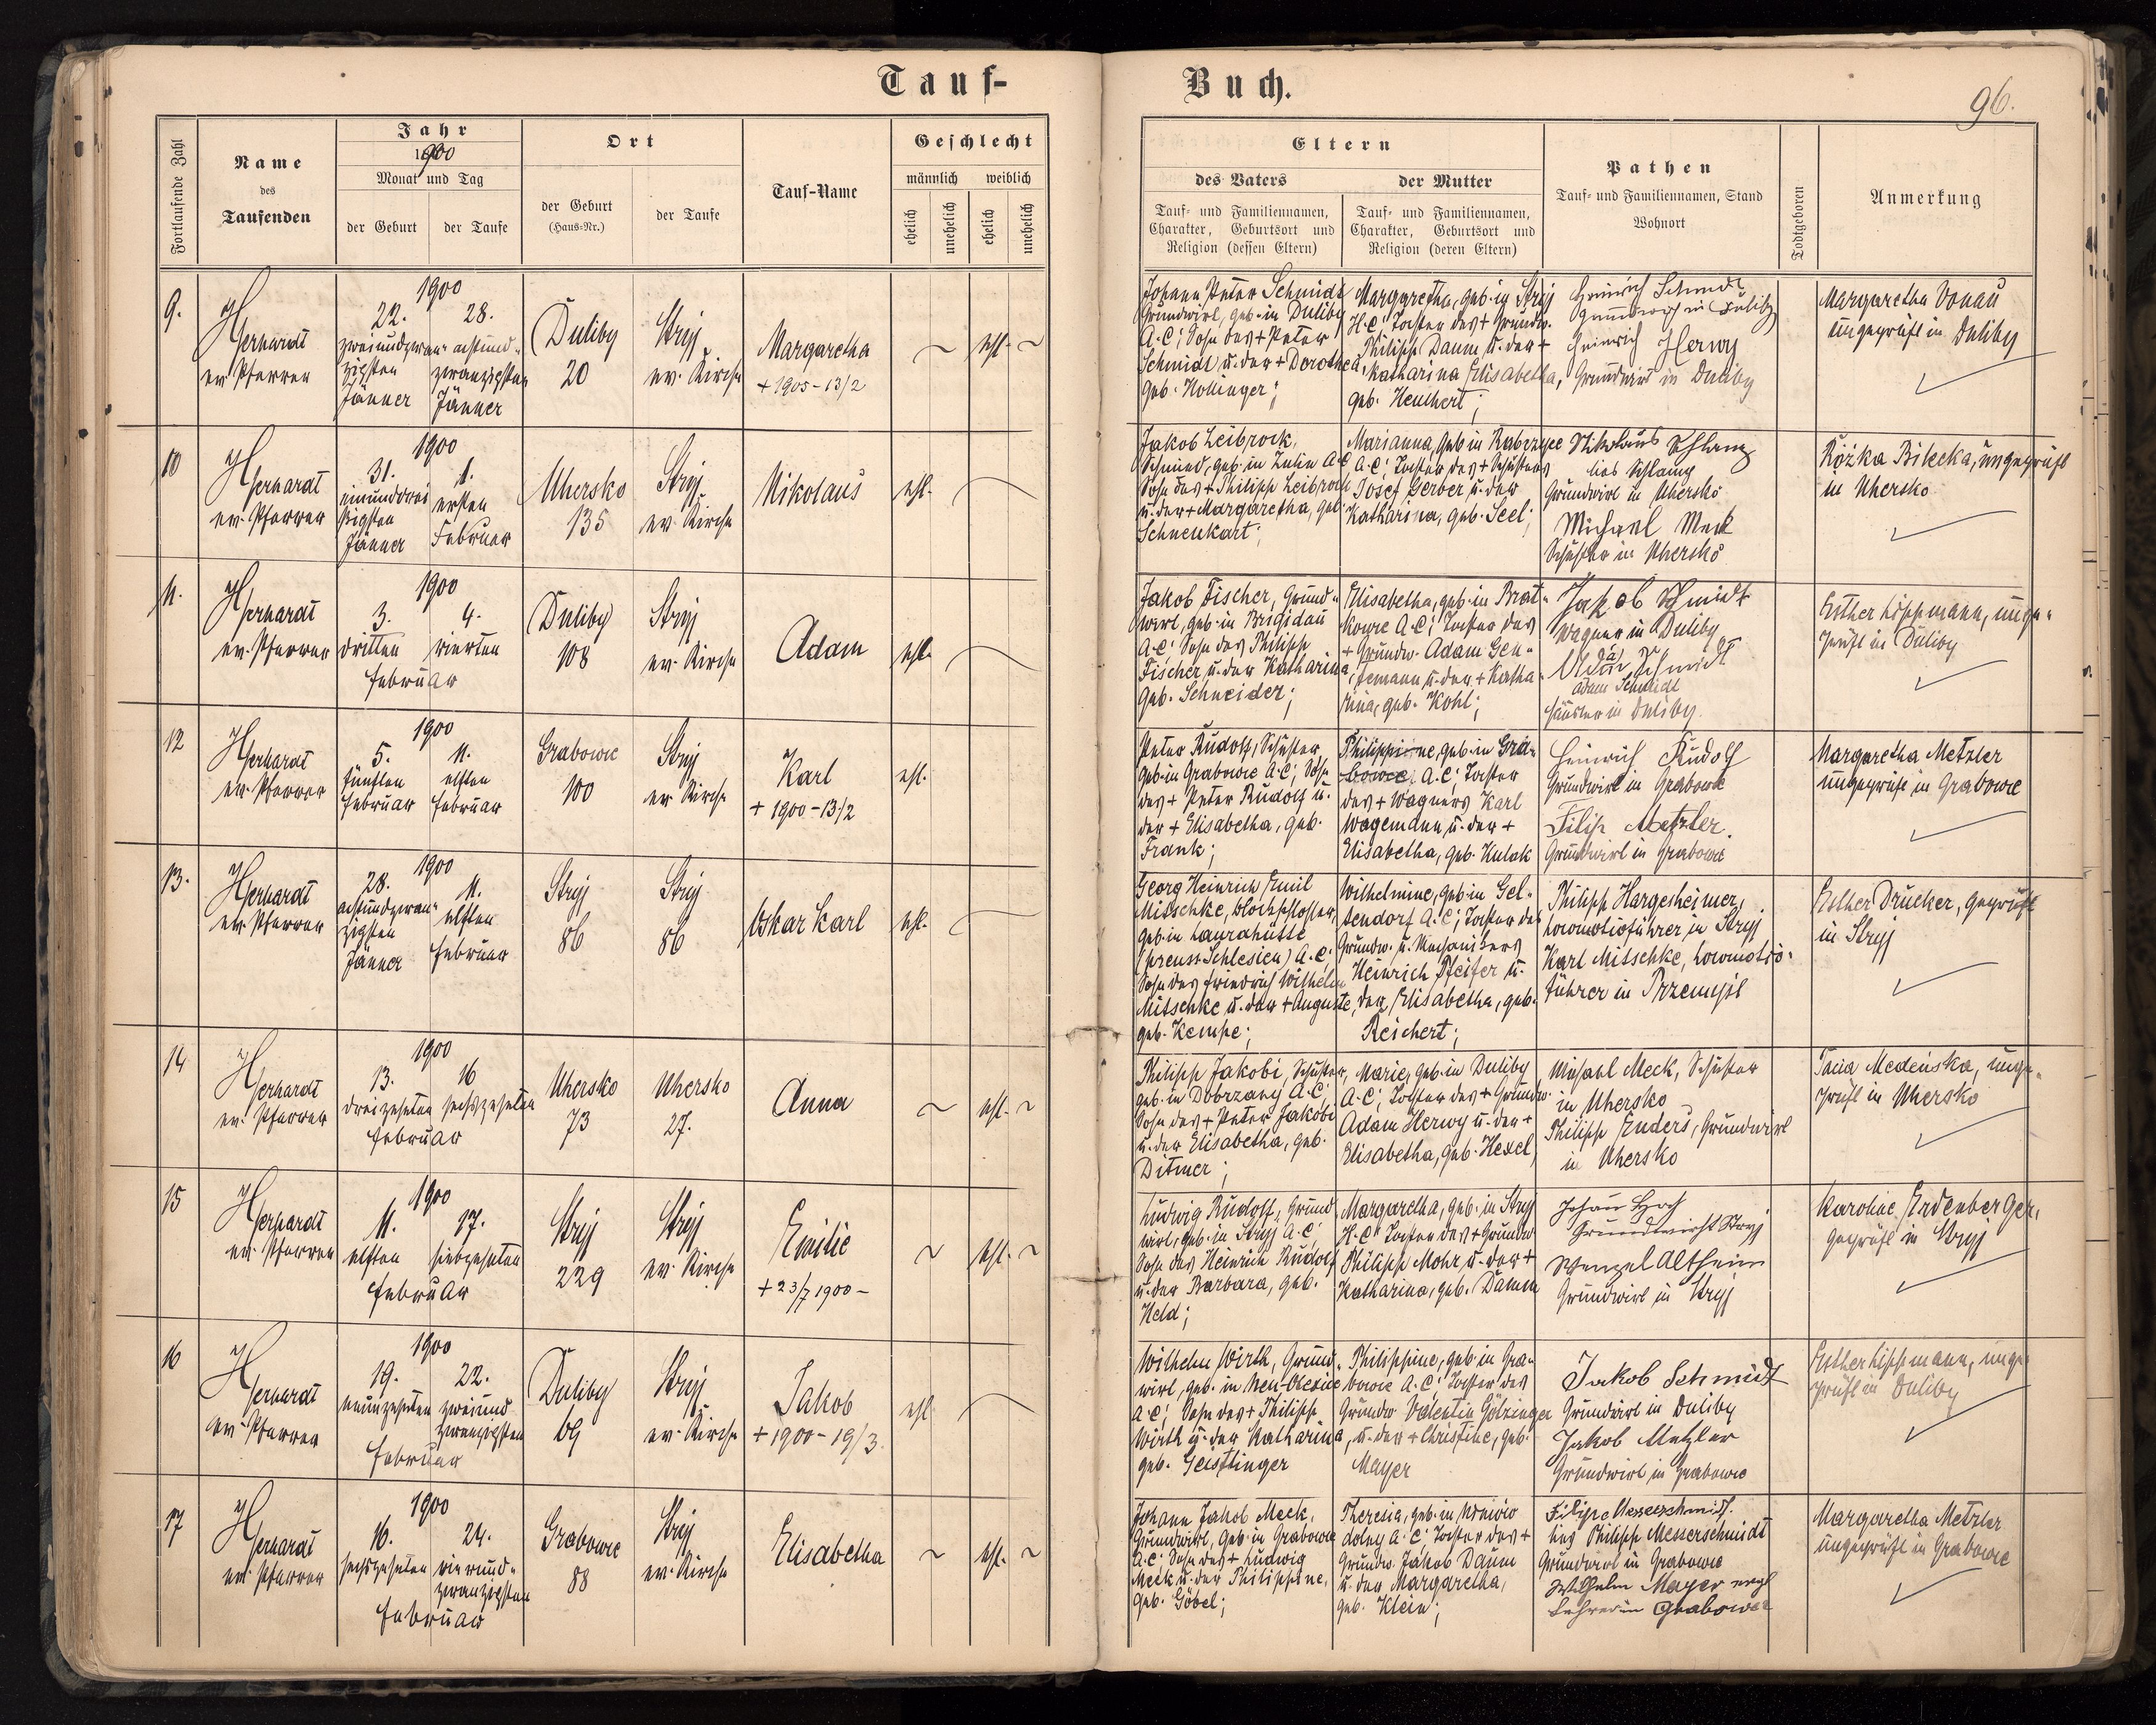 Tauf-
Buch.
96.
Fortlaufende Zahl
Name
des
Taufenden
Jahr
1900
Monat und Tag
der Geburt
der Taufe
Ort
der Geburt
(Haus-Nr.)
der Taufe
Tauf-Name
Geschlecht
männlich
weiblich
ehelich
unehelich
ehelich
unehelich
Eltern
des Vaters
Tauf- und Familiennamen,
Charakter, Geburtsort und
Religion (dessen Eltern)
der Mutter
Tauf- und Familiennamen,
Charakter, Geburtsort und
Religion (deren Eltern)
Pathen
Tauf- und Familiennamen, Stand
Wohnort
Todtgeboren
Anmerkung
9.
Herhardt
ev. Pfarrer
1900
22.
zweiundzwan-
zigsten
Jänner
28.
achtund-
zwanzigsten
Jänner
Duliby
20
Stryj
ev. Kirche
Margaretha
+ 1905-13/2
~ ehl. ~
Johann Peter Schmidt
Grundwirt, geb. in Duliby
A.C; Sohn des + Peter
Schmidt u. der + Dorothea,
geb. Hollinger;
Margaretha, geb. in Stryj
H.C; Tochter des + Grundw.
Philipp Daum u. der +
Katharina Elisabetha,
geb. Heuchert;
Heinrich Schmidt
Grundwirt in Duliby
Heinrich Herwy
Grundwirt in Duliby
Margaretha Donau
ungeprüft in Duliby
10
Herhardt
ev. Pfarrer
1900
31.
einunddrei
ßigsten
Jänner
1.
ersten
Februar
Uhersko
135
Stryj
ev. Kirche
Nikolaus
ehl.
Jakob Leibrock,
Schmied, geb. in Zulin A.C
Sohn des + Philipp Leibrock
u. der + Margaretha, geb.
Schneikart;
Marianna, geb. in
A.C; Tochter des + Schusters
Josef Gerber u. der
Katharina, geb. Seel;
Nikolaus Schlamp
lies Schlamp
Grundwirt in Uhersko
Michael Meck
Schuster in Uhersko
Rózka Bilecka, ungeprüft
in Uhersko
11.
Herhardt
ev. Pfarrer
1900
3.
dritten
4.
vierten
Februar
Duliby
108
Stryj
ev. Kirche
Adam
ehl.
Jakob Fischer, Grund-
wirt, geb. in Brigidau
A.C; Sohn des Philipp
Fischer u. der Katharina,
geb. Schneider;
Elisabetha, geb. in Brat-
kowce A.C; Tochter des
+ Grundw. Adam Gen-
semann u. der + Katha-
rina, geb. Kohl;
Jakob Schmidt
Wagner in Duliby
Adam Schmidt
Adam Schmidt
Häusler in Duliby.
Esther Lippmann, unge-
prüft in Duliby
12
Herhardt
ev. Pfarrer
1900
5.
fünften
Februar
11.
elften
Februar
Grabowce
100
Stryj
ev. Kirche
Karl
+ 1900-13/2
ehl.
Peter Rudolf, Schuster,
geb. in Grabowce A.C; Sohn
des + Peter Rudolf u.
der + Elisabetha, geb.
Frank;
Philippine, geb. in Gra-
bowce A.C; Tochter
des + Wagners Karl
Wagemann u. der +
Elisabetha, geb. Kulak
Heinrich Rudolf
Grundwirt in Grabowce
Filip Metzler.
Grundwirt in Grabowce
Margaretha Metzler
ungeprüft in Grabowce
13.
Herhardt
ev. Pfarrer
1900
28.
achtundzwan-
zigsten
Jänner
11.
elften
Februar
Stryj
86
Stryj
86
Oskar Karl
ehl.
Georg Heinrich Emil
Mitschke, Blockschlosser,
geb. in Laurahütte
(preuss. Schlesien) A.C;
Sohn des Friedrich Wilhelm
Mitschke u. der + Auguste,
geb. Kempe;
Wilhelmine, geb. in Gel-
sendorf A.C; Tochter des
Grundw. u. Maschinisten
Heinrich Pfeifer u.
der Elisabetha, geb.
Reichert;
Philipp Hargesheimer,
Locomotivführer in Stryj
Karl Mitschke, Locomotiv-
führer in Przemyśl
Esther Drucker, geprüft
in Stryj
14
Herhardt
ev. Pfarrer
1900
13.
dreizehnten
16
sechszehnten
Februar
Uhersko
73
Uhersko
27.
Anna
~ ehl. ~
Philipp Jakobi, Schuster,
geb. in Dobrzany A.C;
Sohn des + Peter Jakobi
u. der Elisabetha, geb.
Ditmer;
Marie, geb. in Duliby
A.C; Tochter des + Grundw.
Adam Herwy u. der +
Elisabetha, geb. Hexel,
Michael Meck, Schuster
in Uhersko
Philipp Enders, Grundwirt
in Uhersko
Tacia Medeńska, unge-
prüft in Uhersko
15
Herhardt
ev. Pfarrer
1900
11.
elften
17.
siebzehnten
Februar
Stryj
229
Stryj
ev. Kirche
Emilie
+ 23/7 1900 -
~ ehl. ~
Ludwig Rudolf, Grund
wirt, geb. in Stryj A.C;
Sohn des Heinrich Rudolf
u. der Barbara, geb.
Held;
Margaretha, geb. in Stryj
H.C; Tochter des + Grundw.
Philipp Mohr u. der +
Katharina, geb. Damm
Johann
Grundwirth Stryj
Wenzel Altheim
Grundwirt in Stryj
Karoline Erdenberger,
geprüft in Stryj
16
Herhardt
ev. Pfarrer
1900
19.
neunzehnten
22.
zweiund
zwanzigsten
Februar
Duliby
69
Stryj
ev. Kirche
Jakob
+ 1900-19/3.
ehl.
Wilhelm Wirth, Grund-
wirt, geb. in Neu-Olexine
A.C; Sohn des + Philipp
Wirth u. der Katharina,
geb. Geistlinger
Philippine, geb. in Gra-
bowce A.C; Tochter des
Grundw. Valentin Götzinger
u. der + Christine, geb.
Mayer
Jakob Schmidt
Grundwirt in Duliby
Jakob Metzler
Grundwirt in Grabowce
Esther Lippmann, unge-
prüft in Duliby
17
Herhardt
ev. Pfarrer
1900
16.
sechszehnten
24.
vierund-
zwanzigsten
Februar
Grabowce
88
Stryj
ev. Kirche
Elisabetha
~ ehl. ~
Johann Jakob Meck,
Grundwirt, geb. in Grabowce
A.C; Sohn des + Ludwig
Meck u. der Philippine,
geb. Göbel;
Theresia, geb. in
A.C; Tochter des +
Grundw. Jakob Daum
u. der Margaretha,
geb. Klein;
Filipp Messerschmidt.
lies Philipp Messerschmidt
Grundwirt in Grabowce
Wilhelm Mayer evgl
Lehrer in Grabowce
Margaretha Metzler
ungeprüft in Grabowce